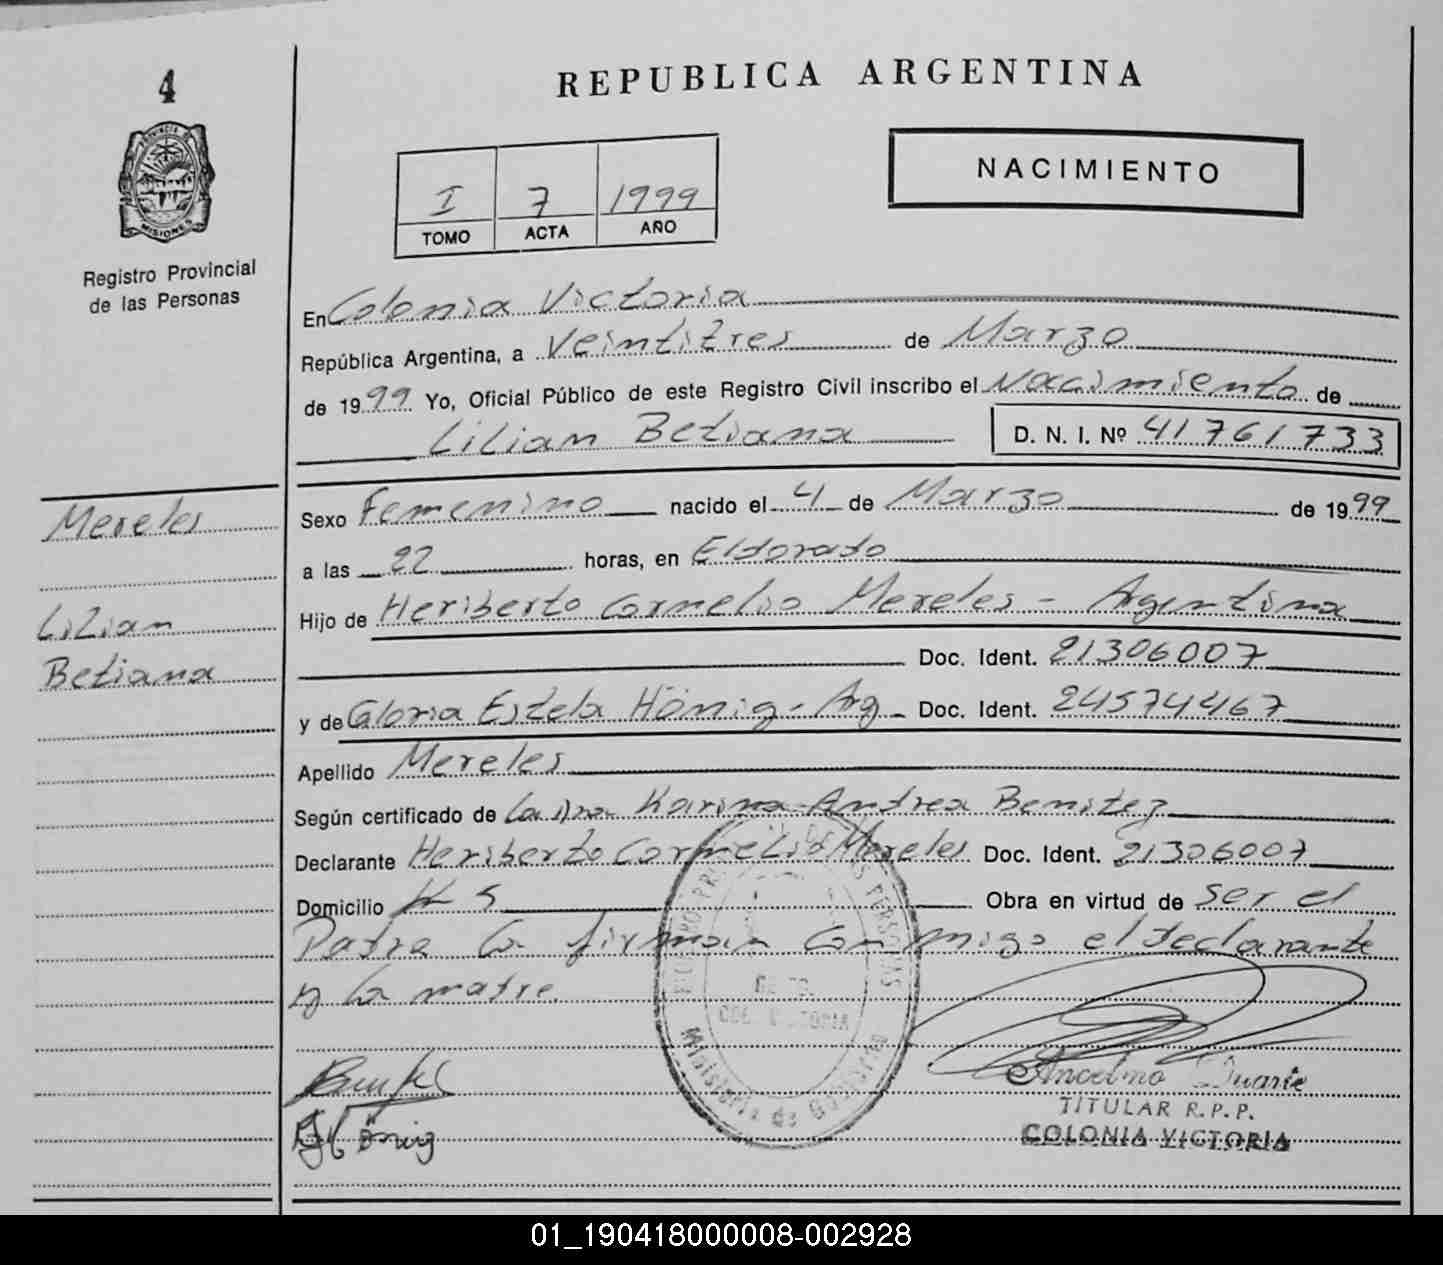 4
PROVINCIA DE
MISIONES
Registro Provincial
de las Personas
Mereles
Lilian
Betiana
REPUBLICA ARGENTINA
NACIMIENTO
I 7 1999
TOMO ACTA AÑO
En Colonia Victoria
República Argentina, a Veintitres de Marzo
de 1999 Yo, Oficial Público de este Registro Civil inscribo el Nacimiento de
Lilian Betiana D. N. I. Nº 41761733
Sexo Femenino nacido el 4 de Marzo de 1999
a las 22 horas, en Eldorado
Hijo de Heriberto Cornelio Mereles - Argentina
Doc. Ident. 21306007
y de Gloria Estela Hönig - Arg Doc. Ident. 24574467
Apellido Mereles
Según certificado de La Dra Karina Andrea Benitez
Declarante Heriberto Cornelio Mereles Doc. Ident. 21306007
Domicilio K 5 Obra en virtud de ser el
Padre Lo firman conmigo el declarante
y la madre.
Ministerio de Gobierno
Hönig
Ancelmo Duarte
TITULAR R.P.P.
COLONIA VICTORIA
01_190418000008-002928